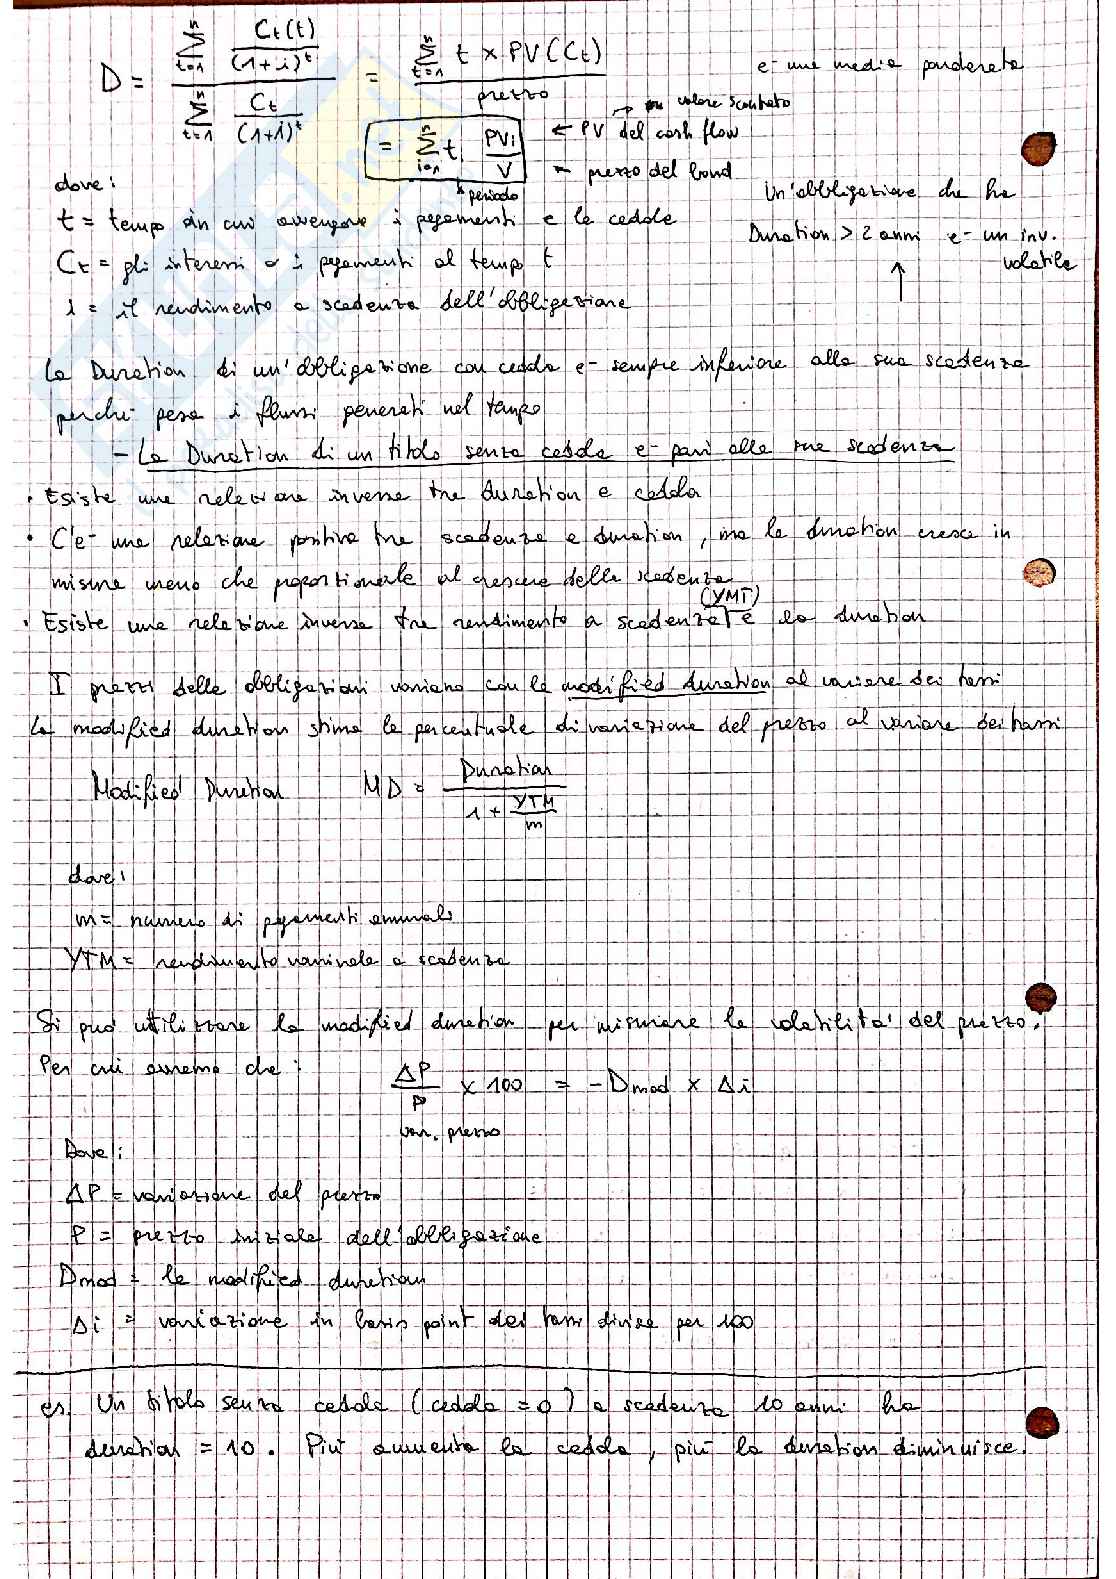 D = Σ(t=1→n) Ct(t)/(1+i)^t / Σ(t=1→n) Ct/(1+i)^t = Σ(t=1→n) t × PV(Ct) / prezzo
e' una media ponderata
→ valore scontato
= Σ(i=1→n) t_i PVi/V ← PV del cash flow
← prezzo del bond
↑ periodo
Un'obbligazione che ha
Duration > 2 anni e' un inv.
volatile
↑
dove:
t = tempo in cui avvengono i pagamenti e le cedole
Ct = gli interessi o i pagamenti al tempo t
i = il rendimento a scadenza dell'obbligazione
La Duration di un'obbligazione con cedola e' sempre inferiore alla sua scadenza
perché pesa i flussi generati nel tempo
- La Duration di un titolo senza cedola e' pari alla sua scadenza
• Esiste una relazione inversa tra duration e cedola
• C'e' una relazione positiva tra scadenza e duration, ma la duration cresce in
misura meno che proporzionale al crescere della scadenza
(YMT)
• Esiste una relazione inversa tra rendimento a scadenza e la duration
I prezzi delle obbligazioni variano con la modified duration al variare dei tassi
La modified duration stima la percentuale di variazione del prezzo al variare dei tassi
Modified Duration MD = Duration / 1 + YTM/m
dove:
m = numero di pagamenti annuali
YTM = rendimento nominale a scadenza
Si può utilizzare la modified duration per misurare la volatilita' del prezzo.
Per cui avremo che: ΔP/P × 100 = -Dmod × Δi
var. prezzo
Dove:
ΔP = variazione del prezzo
P = prezzo iniziale dell'obbligazione
Dmod = la modified duration
Δi = variazione in basis point dei tassi divisa per 100
es. Un titolo senza cedola (cedola = 0) a scadenza 10 anni ha
duration = 10. Più aumenta la cedola, più la duration diminuisce.